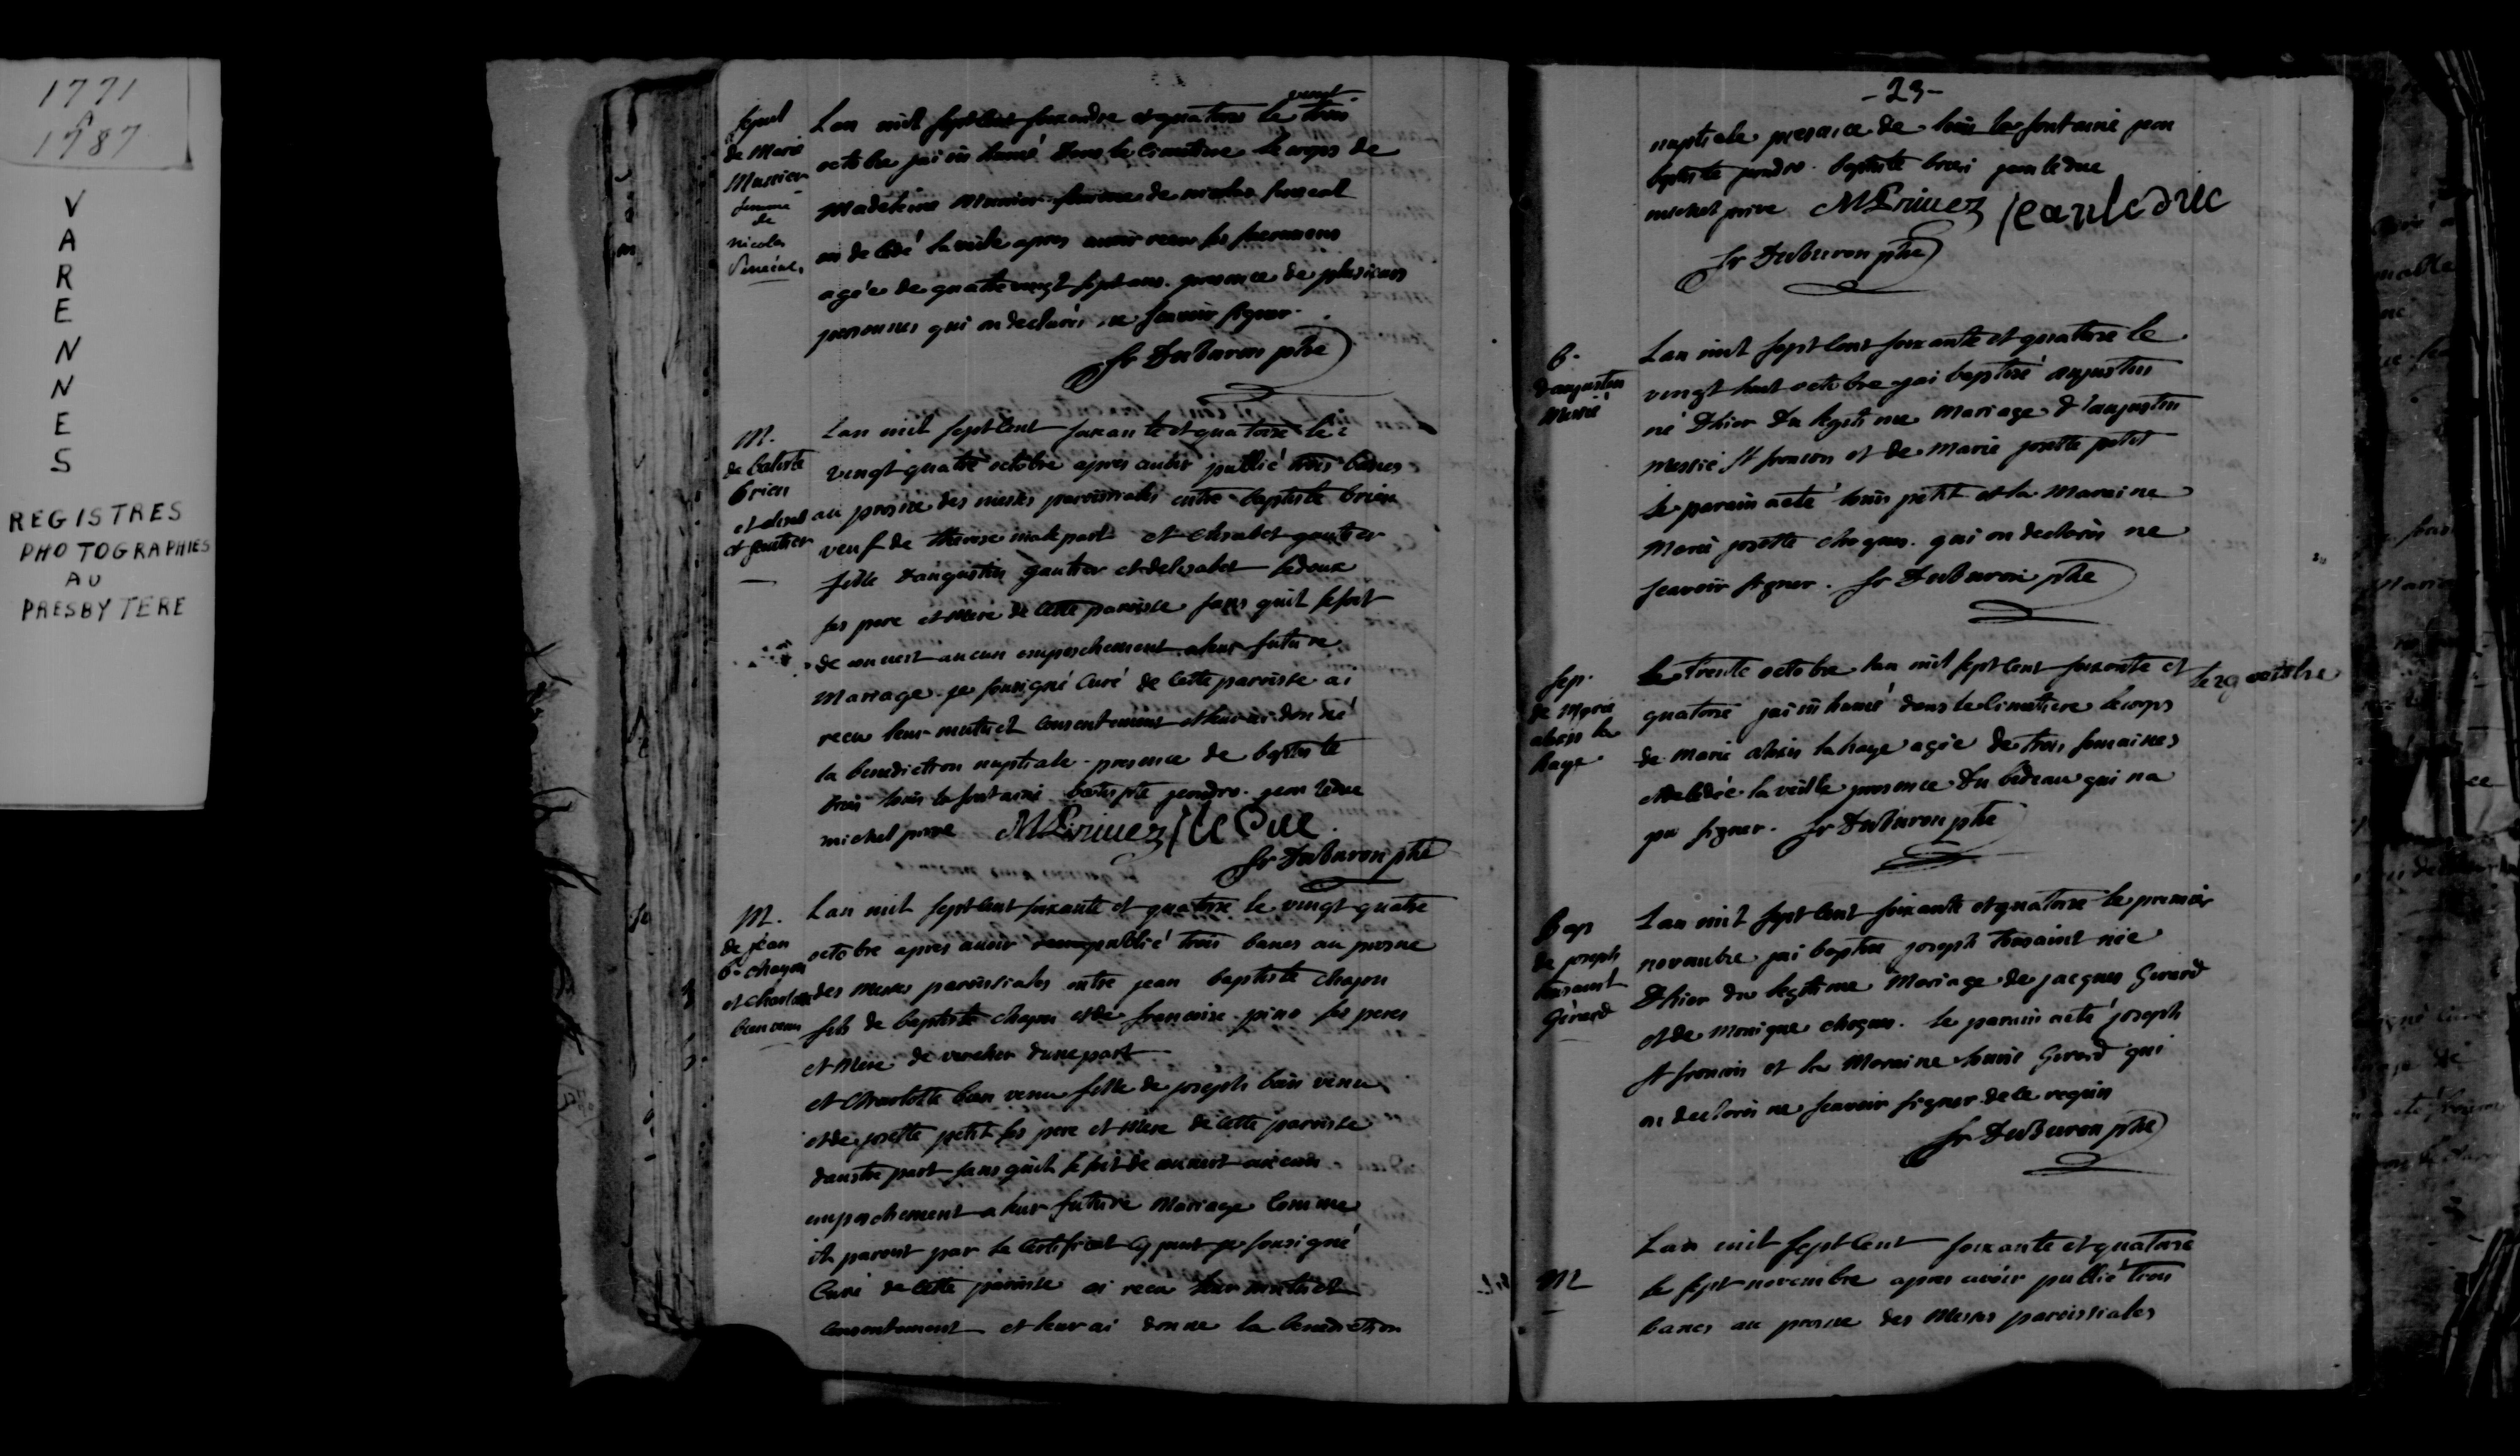 1771
à
1787
VARENNES
REGISTRES
PHOTOGRAPHIES
AU
PRESBYTERE
Sepul
de Marie
Messier
femme
de
nicolas
L an mil sept cent soixandte et quatorse le vingt trois
octobre jai in humé dans le cimetiere le corps de
Madeleine Messier femme de nicolas
on de cédé la veile apres avoir recu ses sacremens
agée de quatrevingt sept ans. presence de plusieurs
personnes qui on declarés ne scavoir signer.
fr Duburon ptre
M.
de batiste
brien
et gautier
Lan mil sept cent soixante et quatorse le
vingt quatre octobre apres avoir publié trois bancs
au prosne des messes paroissiales entre baptiste brien
veuf de therese malepart et elisabet gautier
fille daugustin gautier et delisabet ledoux
ses pere et Mere de cette paroisse sans quil se soit
de couvert aucun empeschement a leur future
Mariage je sousigné Curé de cette paroisse ai
recu leur mutuel consentement et leur ai donné
la benediction nuptiale. presence de baptiste
brien louis la fontaine batispte jendro. jean leduc
michel prive M Privez J le Duc.
fr Duburon ptre
M.
de jean
bte chapu
et charlotte
bien venu
L an mil sept cent soixante et quatorse le vingt quatre
octobre apres avoir publié trois bancs au prosne
des Messes paroissiales entre jean baptiste chapu
fils de baptiste chapu et de francoise pino ses peres
et Mere de vercher dune part
et Charlotte bien venu fille de joseph bien venu
et de josette petit ses pere et Mere de cette paroisse
daustre part sans quil se soit de couvert aucun
empeschement a leur future Mariage Comme
il paroit par le Certificat je sousigné
Curé de cette paroisse ai recu leur mutuel
consentement et leur ai donne la benediction
- 23 -
nuptiale presence de louis la fontaine jean
baptiste jendro. baptiste brien jean leduc
michel prive M Privez jean leduc
fr Duburon ptre
B.
daugustin
Messié
Lan mil sept cent soixante et quatorse le
vingt huit octobre jai baptisé augustin
né Dhier du legitime Mariage d'augustin
Messié st francois et de Marie josette petit
le parain aeté louis petit et la Maraine
Marie josette choquet. qui on declarés ne
scavoir signer. fr Duburon ptre
Sep.
de Marie
la
haye
Le trente octobre lan mil sept cent soixante et le 29 octobre
quatorse jai in humé dans le cimetiere le corps
de Marie la haye agée de trois semaines
et decedée la veille presence du bedeau qui na
pu signer. fr Duburon ptre
Bap
de joseph
tousaint
Gérard
L an mil sept cent soixante et quatorse le premier
novembre jai baptisé joseph tousaint née
Dhier du legitime Mariage de jacques Gerard
et de Monique choquet. le parain aeté joseph
st francois et la Maraine Gerard qui
on declarés ne scavoir signer de ce requis
fr Duburon ptre
M
Lan mil sept cent soixante et quatorse
le sept novembre apres avoir publié trois
bancs au prosne des Messes paroissiales